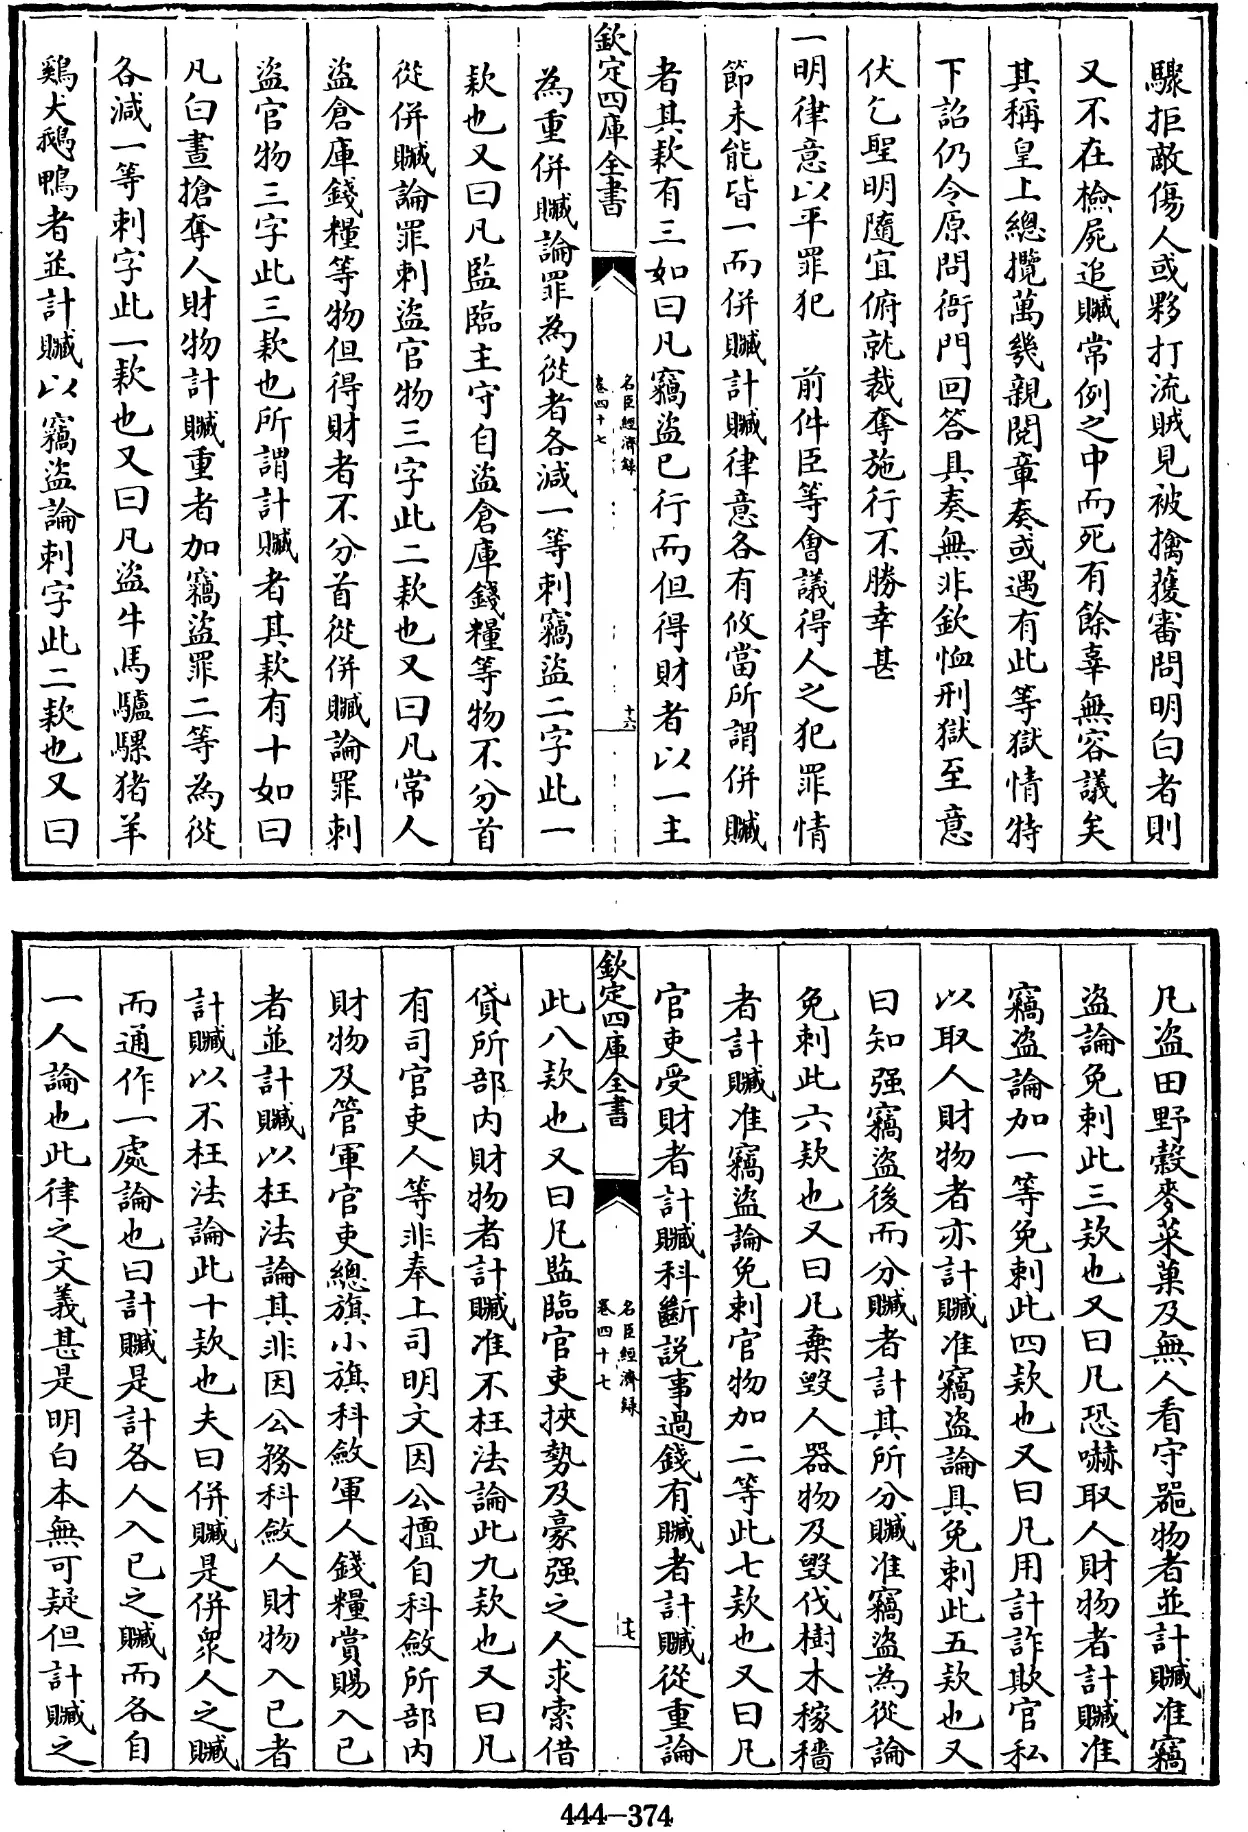 驟拒敵傷人或夥打流賊見被擒獲審問明白者則
又不在檢屍追贓常例之中而死有餘辜無容議矣
其稱皇上總攬萬幾親閱章奏或遇有此等獄情特
下詔仍令原問衙門回答具奏無非欽恤刑獄至意
伏乞聖明隨宜俯就裁奪施行不勝幸甚
一明律意以平罪犯　前件臣等會議得人之犯罪情
節未能皆一而併贓計贓律意各有攸當所謂併贓
者其款有三如曰凡竊盜已行而但得財者以一主
欽定四庫全書
名臣經濟錄
卷四十七
十六
為重併贓論罪為從者各減一等刺竊盜二字此一
款也又曰凡監臨主守自盜倉庫錢糧等物不分首
從併贓論罪刺盜官物三字此二款也又曰凡常人
盜倉庫錢糧等物但得財者不分首從併贓論罪刺
盜官物三字此三款也所謂計贓者其款有十如曰
凡白晝搶奪人財物計贓重者加竊盜罪二等為從
各減一等刺字此一款也又曰凡盜牛馬驢騾猪羊
鷄犬鵝鴨者並計贓以竊盜論刺字此二款也又曰
凡盜田野穀麥菜菓及無人看守噐物者並計贓准竊
盜論免刺此三款也又曰凡恐嚇取人財物者計贓准
竊盜論加一等免刺此四款也又曰凡用計詐欺官私
以取人財物者亦計贓准竊盜論具免刺此五款也又
曰知强竊盜後而分贓者計其所分贓准竊盜為從論
免刺此六款也又曰凡棄毀人器物及毀伐樹木稼穡
者計贓准竊盜論免刺官物加二等此七款也又曰凡
官吏受財者計贓科斷說事過錢有贓者計贓從重論
欽定四庫全書
名臣經濟錄
卷四十七
十七
此八款也又曰凡監臨官吏挾勢及豪强之人求索借
貸所部內財物者計贓准不枉法論此九款也又曰凡
有司官吏人等非奉上司明文因公擅自科斂所部內
財物及管軍官吏總旗小旗科斂軍人錢糧賞賜入己
者並計贓以枉法論其非因公務科斂人財物入己者
計贓以不枉法論此十款也夫曰併贓是併衆人之贓
而通作一處論也曰計贓是計各人入己之贓而各自
一人論也此律之文義甚是明白本無可疑但計贓之
444-374